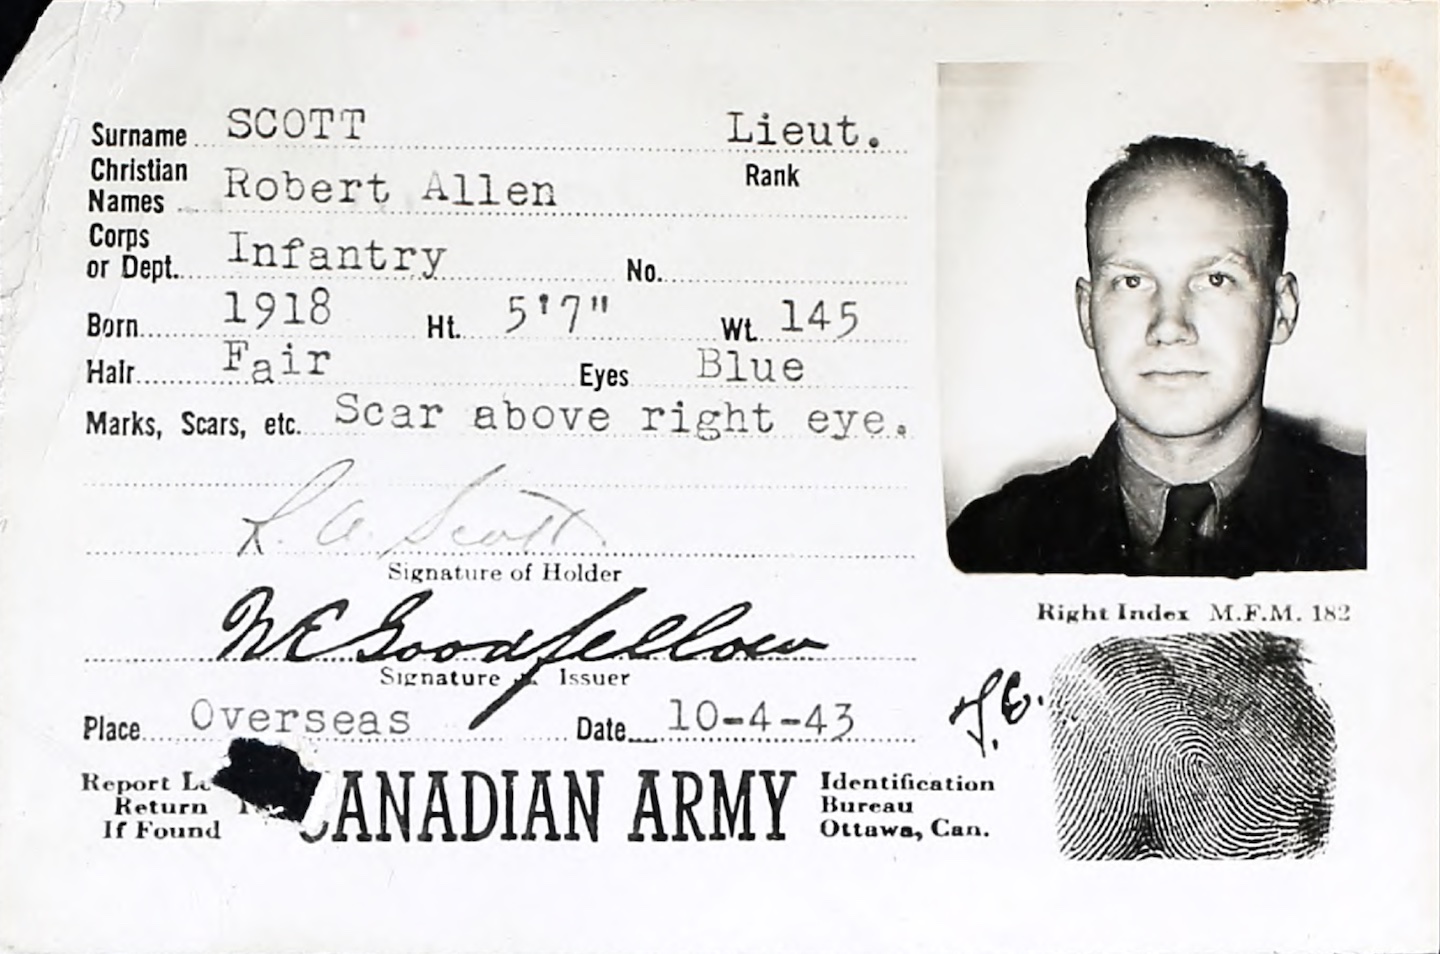 Surname SCOTT Lieut.
Christian Names Robert Allen Rank
Corps or Dept. Infantry No.
Born 1918 Ht. 5'7" Wt. 145
Hair Fair Eyes Blue
Marks, Scars, etc. Scar above right eye.
R. A. Scott
Signature of Holder
Goodfellow
Signature Issuer
Place Overseas Date 10-4-43
Report
Return
If Found
CANADIAN ARMY
Identification
Bureau
Ottawa, Can.
Right Index M.F.M. 182